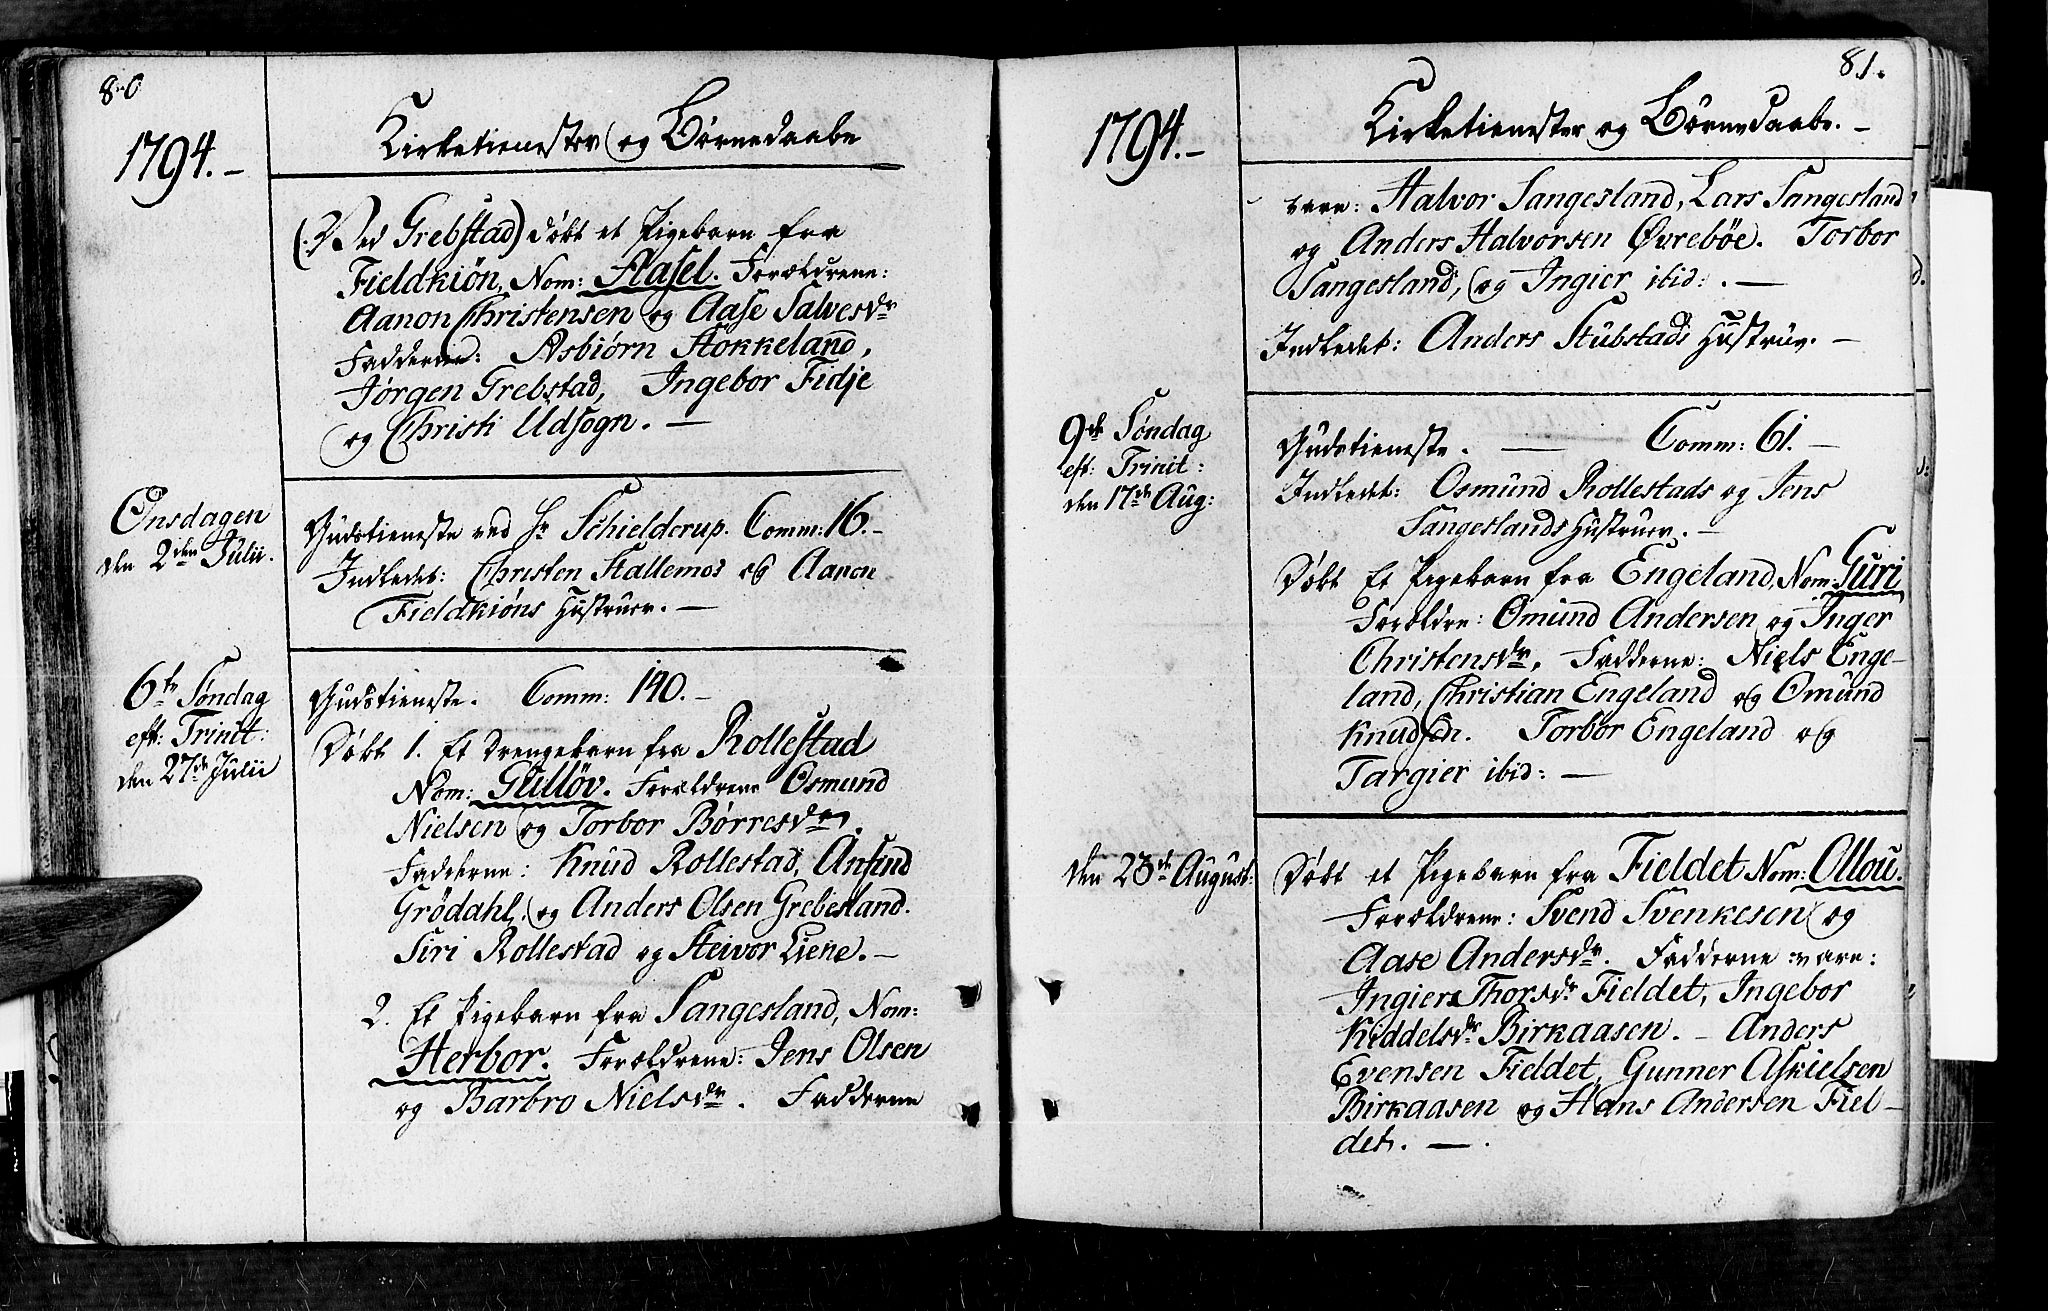 80
1794.-
Kirketienester og Børnedaabe
(: Ved Grebstad) døbt et Pigebarn fra
Fieldkiön, Nom: Aasel. Forældrene:
Aanon Christensen og Aase Salvesdr
Fadderne: Asbiörn Stokkeland,
Jørgen Grebstad, Ingebor Fidje
og Christi Udsogn. —
Onsdagen
den 2den Julii.
Gudstieneste ved Hr Schielderup. Comm: 16.-
Indledet: Christen Stallemos og Aanon
Fieldkiöns Hustruer. —
6te Søndag
eft: Trinit:
den 27de Julii
Gudstieneste. Comm: 140.-
Døbt 1. Et Drengebarn fra Rollestad
Nom: Gulløv. Forældrene Osmund
Nielsen og Torbor Børresdr.
Fadderne: Knud Rollestad, Ansund
Grödahl, og Anders Olsen Grebesland.
Siri Rollestad og Steivor Liene. —
2. Et Pigebarn fra Sangesland, Nom:
Herbor. Forældrene: Jens Olsen
og Barbro Nielsdr. Fadderne
81.
1794.-
Kirketienester og Børnedaabe. -
vare: Halvor Sangesland, Lars Sangesland
og Anders Halvorsen Øvreböe. Torbor
Sangesland, og Ingier ibid: . —
Indledet: Anders Stubstads Hustrue. —
9de Søndag
eft: Trinit:
den 17de Aug:
Gudstieneste. — Comm: 61. —
Indledet: Osmund Rollestads og Jens
Sangeslands Hustruer. -
Døbt Et Pigebarn fra Engeland, Nom: Guri
Forældre: Omund Andersen og Inger
Christensdr. Fadderne: Niels Enge-
land, Christian Engeland og Omund
Knudsen. Torbor Engeland og
Targier ibid: —
den 23de August.
Døbt et Pigebarn fra Fieldet Nom: Ollou.
Forældrene: Svend Svenkesen og
Aase Andersdr. Fadderne vare:
Ingier Thorsdr Fieldet, Ingebor
Kiddelsdr Birkaasen. - Anders
Evensen Fieldet, Gunner Askielsen
Birkaasen og Hans Andersen Fiel-
det. — .